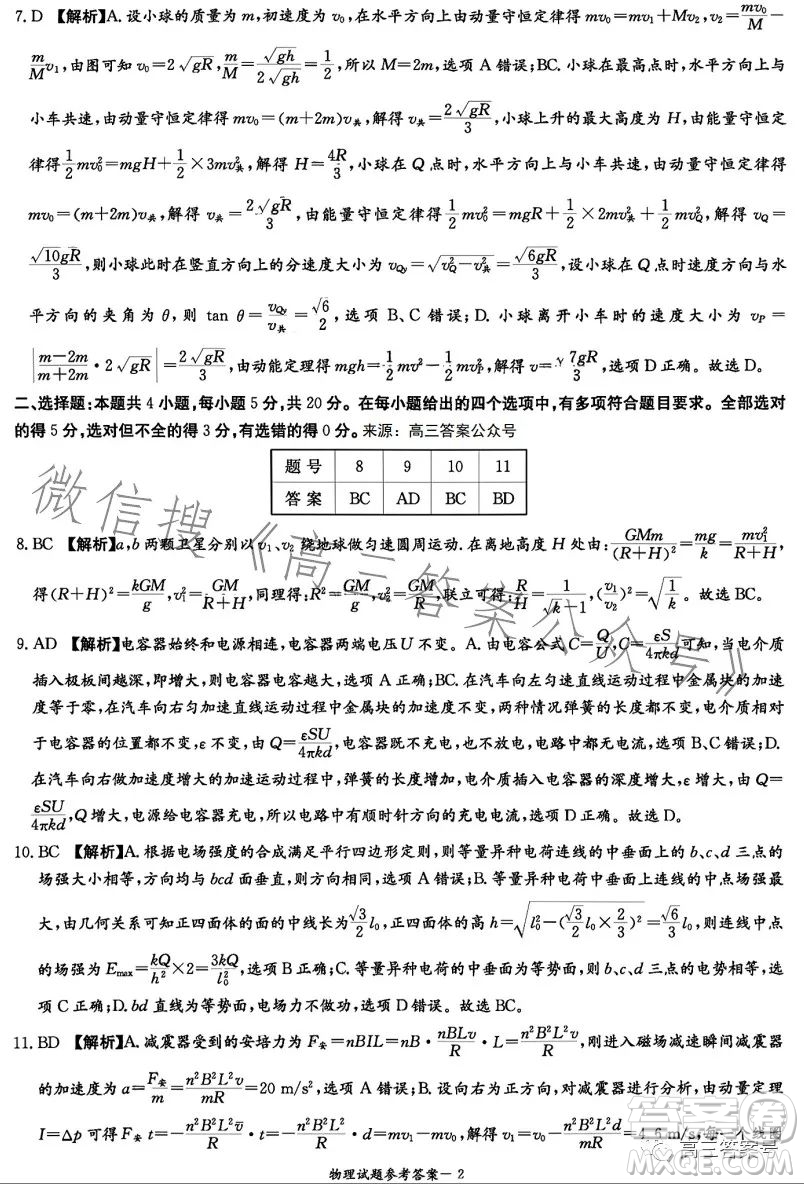 7. D 【解析】A. 设小球的质量为 m,初速度为 v₀,在水平方向上由动量守恒定律得 mv₀=mv₁+Mv₂,v₂=mv₀/M−
m/M v₁,由图可知 v₀=2√gR,m/M=√gh/2√gh=1/2,所以 M=2m,选项 A 错误;BC. 小球在最高点时,水平方向上与
小车共速,由动量守恒定律得 mv₀=(m+2m)v共,解得 v共=2√gR/3,小球上升的最大高度为 H,由能量守恒定
律得1/2 mv₀²=mgH+1/2×3mv共²,解得 H=4R/3,小球在 Q 点时,水平方向上与小车共速,由动量守恒定律得
mv₀=(m+2m)v共,解得 v共=2√gR/3,由能量守恒定律得1/2 mv₀²=mgR+1/2×2mv共²+1/2 mv_Q²,解得 v_Q=
√10gR/3,则小球此时在竖直方向上的分速度大小为 v_Qy=√(v_Q²−v共²)=√6gR/3,设小球在 Q 点时速度方向与水
平方向的夹角为 θ,则 tan θ=v_Qy/v共=√6/2,选项 B、C 错误;D. 小球离开小车时的速度大小为 v_P=
|m−2m/m+2m·2√gR|=2√gR/3,由动能定理得 mgh=1/2 mv²−1/2 mv_P²,解得 v=√7gR/3,选项 D 正确。故选 D。
二、选择题:本题共 4 小题,每小题 5 分,共 20 分。在每小题给出的四个选项中,有多项符合题目要求。全部选对
的得 5 分,选对但不全的得 3 分,有选错的得 0 分。来源:高三答案公众号
题号 8 9 10 11
答案 BC AD BC BD
8. BC 【解析】a、b 两颗卫星分别以 v₁、v₂ 绕地球做匀速圆周运动.在离地高度 H 处由:GMm/(R+H)²=mg/k=mv₁²/R+H,
得(R+H)²=kGM/g,v₁²=GM/R+H,同理得:R²=GM/g,v₂²=GM/R,联立可得:R/H=1/√k−1,(v₁/v₂)²=√1/k。故选 BC。
9. AD 【解析】电容器始终和电源相连,电容器两端电压 U 不变。A. 由电容公式 C=Q/U,C=εS/4πkd可知,当电介质
插入极板间越深,即增大,则电容器电容越大,选项 A 正确;BC. 在汽车向左匀速直线运动过程中金属块的加速
度等于零,在汽车向右匀加速直线运动过程中金属块的加速度不变,两种情况弹簧的长度都不变,电介质相对
于电容器的位置都不变,ε 不变,由 Q=εSU/4πkd,电容器既不充电,也不放电,电路中都无电流,选项 B、C错误;D.
在汽车向右做加速度增大的加速运动过程中,弹簧的长度增大,电介质插入电容器的深度增大,由 Q=
εSU/4πkd,Q 增大,电源给电容器充电,所以电路中有顺时针方向的充电电流,选项 D 正确。故选 D。
10. BC 【解析】A. 根据电场强度的合成满足平行四边形定则,则等量异种电荷连线的中垂面上的 b、c、d 三点的
场强大小相等,方向均与 bcd 面垂直,则方向相同,选项 A 错误;B. 等量异种电荷中垂面上连线的中点场强最
大,由几何关系可知正四面体的面的中线长为√3/2 l₀,正四面体的高 h=√(l₀²−(√3/2 l₀×2/3)²)=√6/3 l₀,则连线中点
的场强为 Emax=kQ/h²×2=3kQ/l₀²,选项 B 正确;C. 等量异种电荷的中垂面为等势面,则 b、c、d 三点的电势相等,选
项 C 正确;D. bd 直线为等势面,电场力不做功,选项 D 错误。故选 BC。
11. BD 【解析】A. 减震器受到的安培力为 F安=nBIL=nB·nBLv/R·L=n²B²L²v/R,刚进入磁场减速瞬间减震器
的加速度为 a=F安/m=n²B²L²v/mR=20 m/s²,选项 A 错误;B. 设向右为正方向,对减震器进行分析,由动量定理
I=Δp 可得 F安 t=−n²B²L²v̄/R·t=−n²B²L²/R·d=mv₁−mv₀,解得 v₁=v₀−n²B²L²d/mR=4.6 m/s,每一个线圈
物理试题参考答案−2
微信搜《高三答案公众号》
答案圈
MXQE.COM
高三答案号